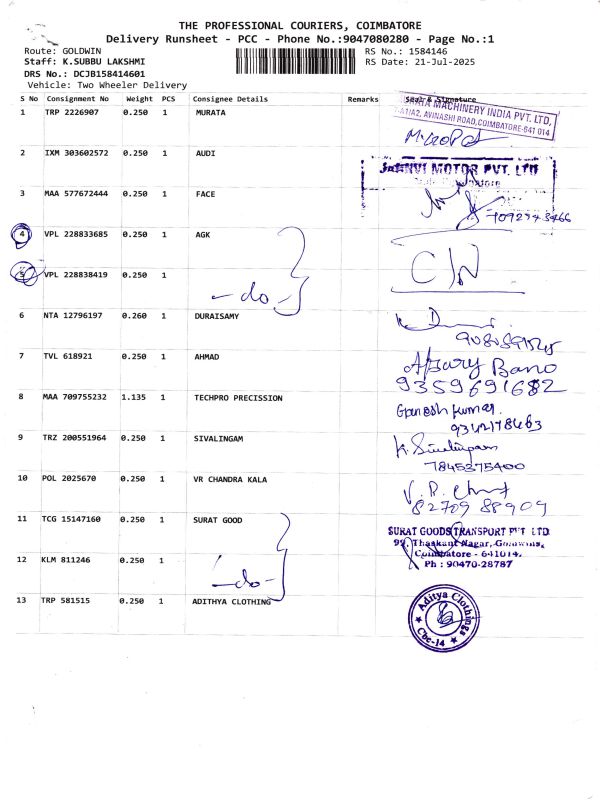 THE PROFESSIONAL COURIERS, COIMBATORE
Delivery Runsheet - PCC - Phone No.:9047080280 - Page No.:1
Route: GOLDWIN RS No.: 1584146
Staff: K.SUBBU LAKSHMI RS Date: 21-Jul-2025
DRS No.: DCJB158414601
Vehicle: Two Wheeler Delivery
S No Consignment No Weight PCS Consignee Details Remarks Seal & Signature
1 TRP 2226907 0.250 1 MURATA
MACHINERY INDIA PVT. LTD,
AVINASHI ROAD, COIMBATORE-641 014
2 IXM 303602572 0.250 1 AUDI
MOTOR PVT. LTD
3 MAA 577672444 0.250 1 FACE
4 VPL 228833685 0.250 1 AGK
C/N
5 VPL 228838419 0.250 1
-do-
6 NTA 12796197 0.260 1 DURAISAMY
7 TVL 618921 0.250 1 AHMAD
Bano
9359691682
8 MAA 709755232 1.135 1 TECHPRO PRECISSION
Ganesh kumar.
9342178463
9 TRZ 200551964 0.250 1 SIVALINGAM
7845375400
10 POL 2025670 0.250 1 VR CHANDRA KALA
82709 88909
11 TCG 15147160 0.250 1 SURAT GOOD
SURAT GOODS TRANSPORT PVT LTD
Nagar, Goldwins,
Coimbatore - 641014.
Ph : 90470-28787
12 KLM 811246 0.250 1
-do-
13 TRP 581515 0.250 1 ADITHYA CLOTHING
Aditya Clothings
Cbe-14